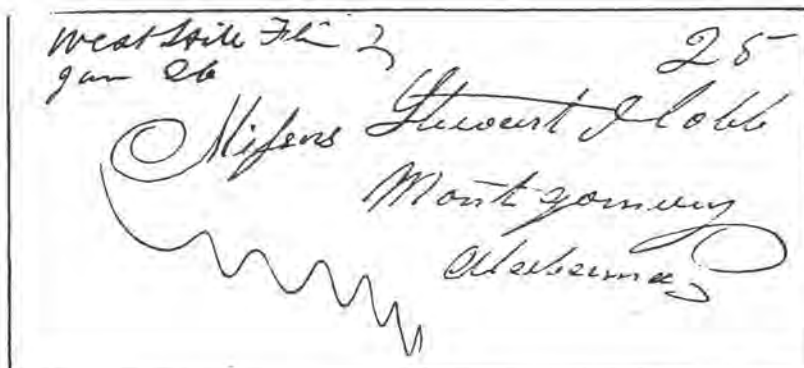 West Hill Fla 25
Jan 26
Messrs Stewart & Cobb
Montgomery
Alabama